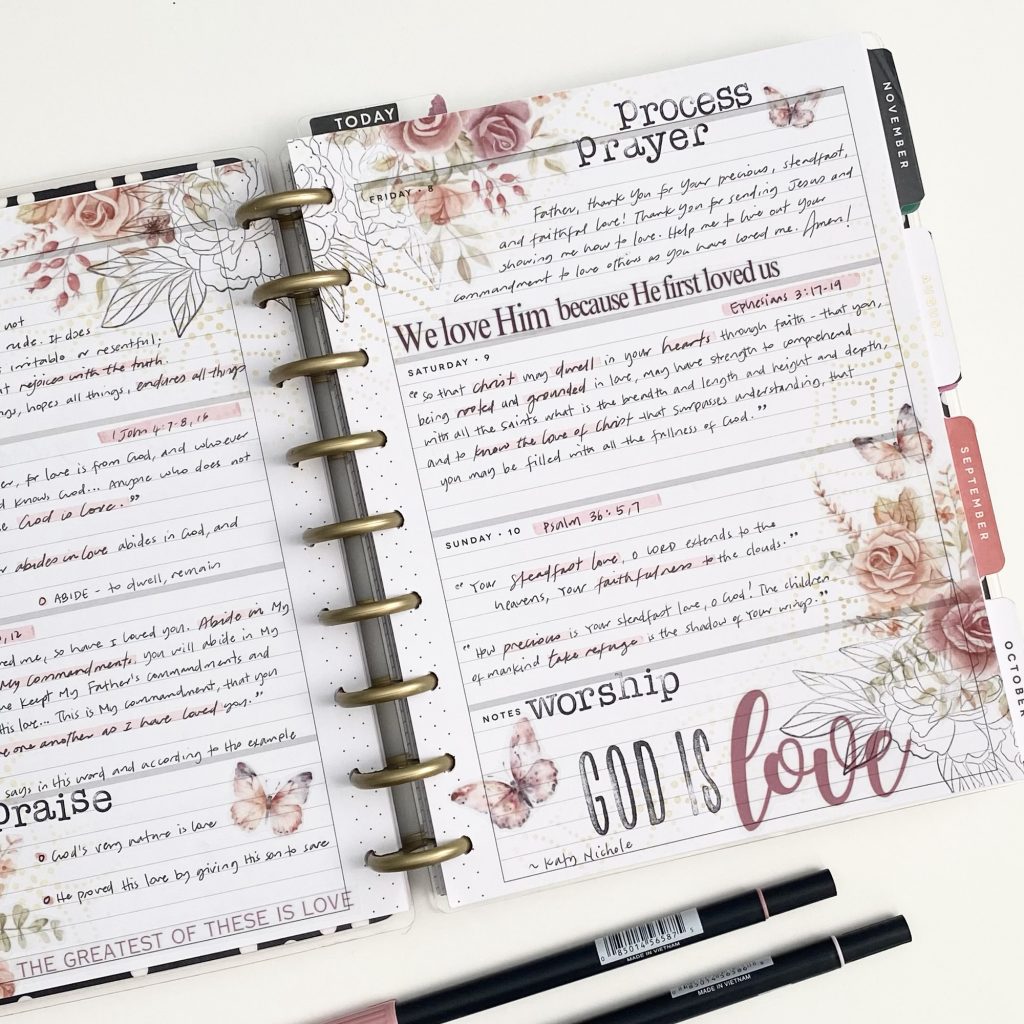 not
rude. It does
irritable or resentful;
rejoices with the truth.
hopes all things, endures all things
1 John 4:7-8, 16
for love is from God, and whoever
knows God... Anyone who does not
God is love."
abides in love abides in God, and
ABIDE - to dwell, remain
12
me, so have I loved you. Abide in My
My commandments, you will abide in My
kept My Father's commandments and
His love... This is My commandment, that you
one another as I have loved you."
says in His word and according to the example
praise
God's very nature is love
He proved His love by giving His son to save
THE GREATEST OF THESE IS LOVE
TODAY
process
prayer
FRIDAY • 8
Father, thank You for Your precious, steadfast,
and faithful love! Thank You for sending Jesus and
showing me how to love. Help me to live out your
commandment to love others as you have loved me. Amen!
We love Him because He first loved us
Ephesians 3:17-19
SATURDAY • 9
"so that Christ may dwell in your hearts through faith - that you,
being rooted and grounded in love, may have strength to comprehend
with all the saints what is the breadth and length and height and depth,
and to know the love of Christ that surpasses understanding, that
you may be filled with all the fullness of God."
SUNDAY • 10
Psalm 36:5,7
"Your steadfast love, O LORD extends to the
heavens, Your faithfulness to the clouds."
"How precious is Your steadfast love, O God! The children
of mankind take refuge is the shadow of Your wings."
NOTES
worship
GOD IS love
~ Katy Nichole
NOVEMBER
AUGUST
SEPTEMBER
OCTOBER
MADE IN VIETNAM
MADE IN VIETNAM